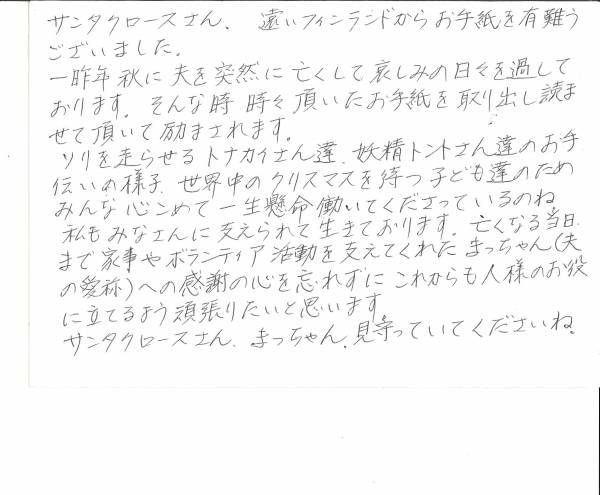 サンタクロースさん、 遠いフィンランドからお手紙を有難う
ございました。
一昨年秋に夫を突然に亡くして哀しみの日々を過して
おります。そんな時時々頂いたお手紙を取り出し読ま
せて頂いて励まされます。
ソリを走らせるトナカイさん達、妖精トントさん達のお手
伝いの様子、世界中のクリスマスを待つ子ども達のため
みんな心こめて一生懸命働いてくださっているのね
私もみなさんに支えられて生きております。亡くなる当日
まで家事やボランティア活動を支えてくれたまっちゃん(夫
の愛称)への感謝の心を忘れずにこれからも人様のお役
に立てるよう頑張りたいと思います
サンタクロースさん、まっちゃん、見守っていてくださいね。